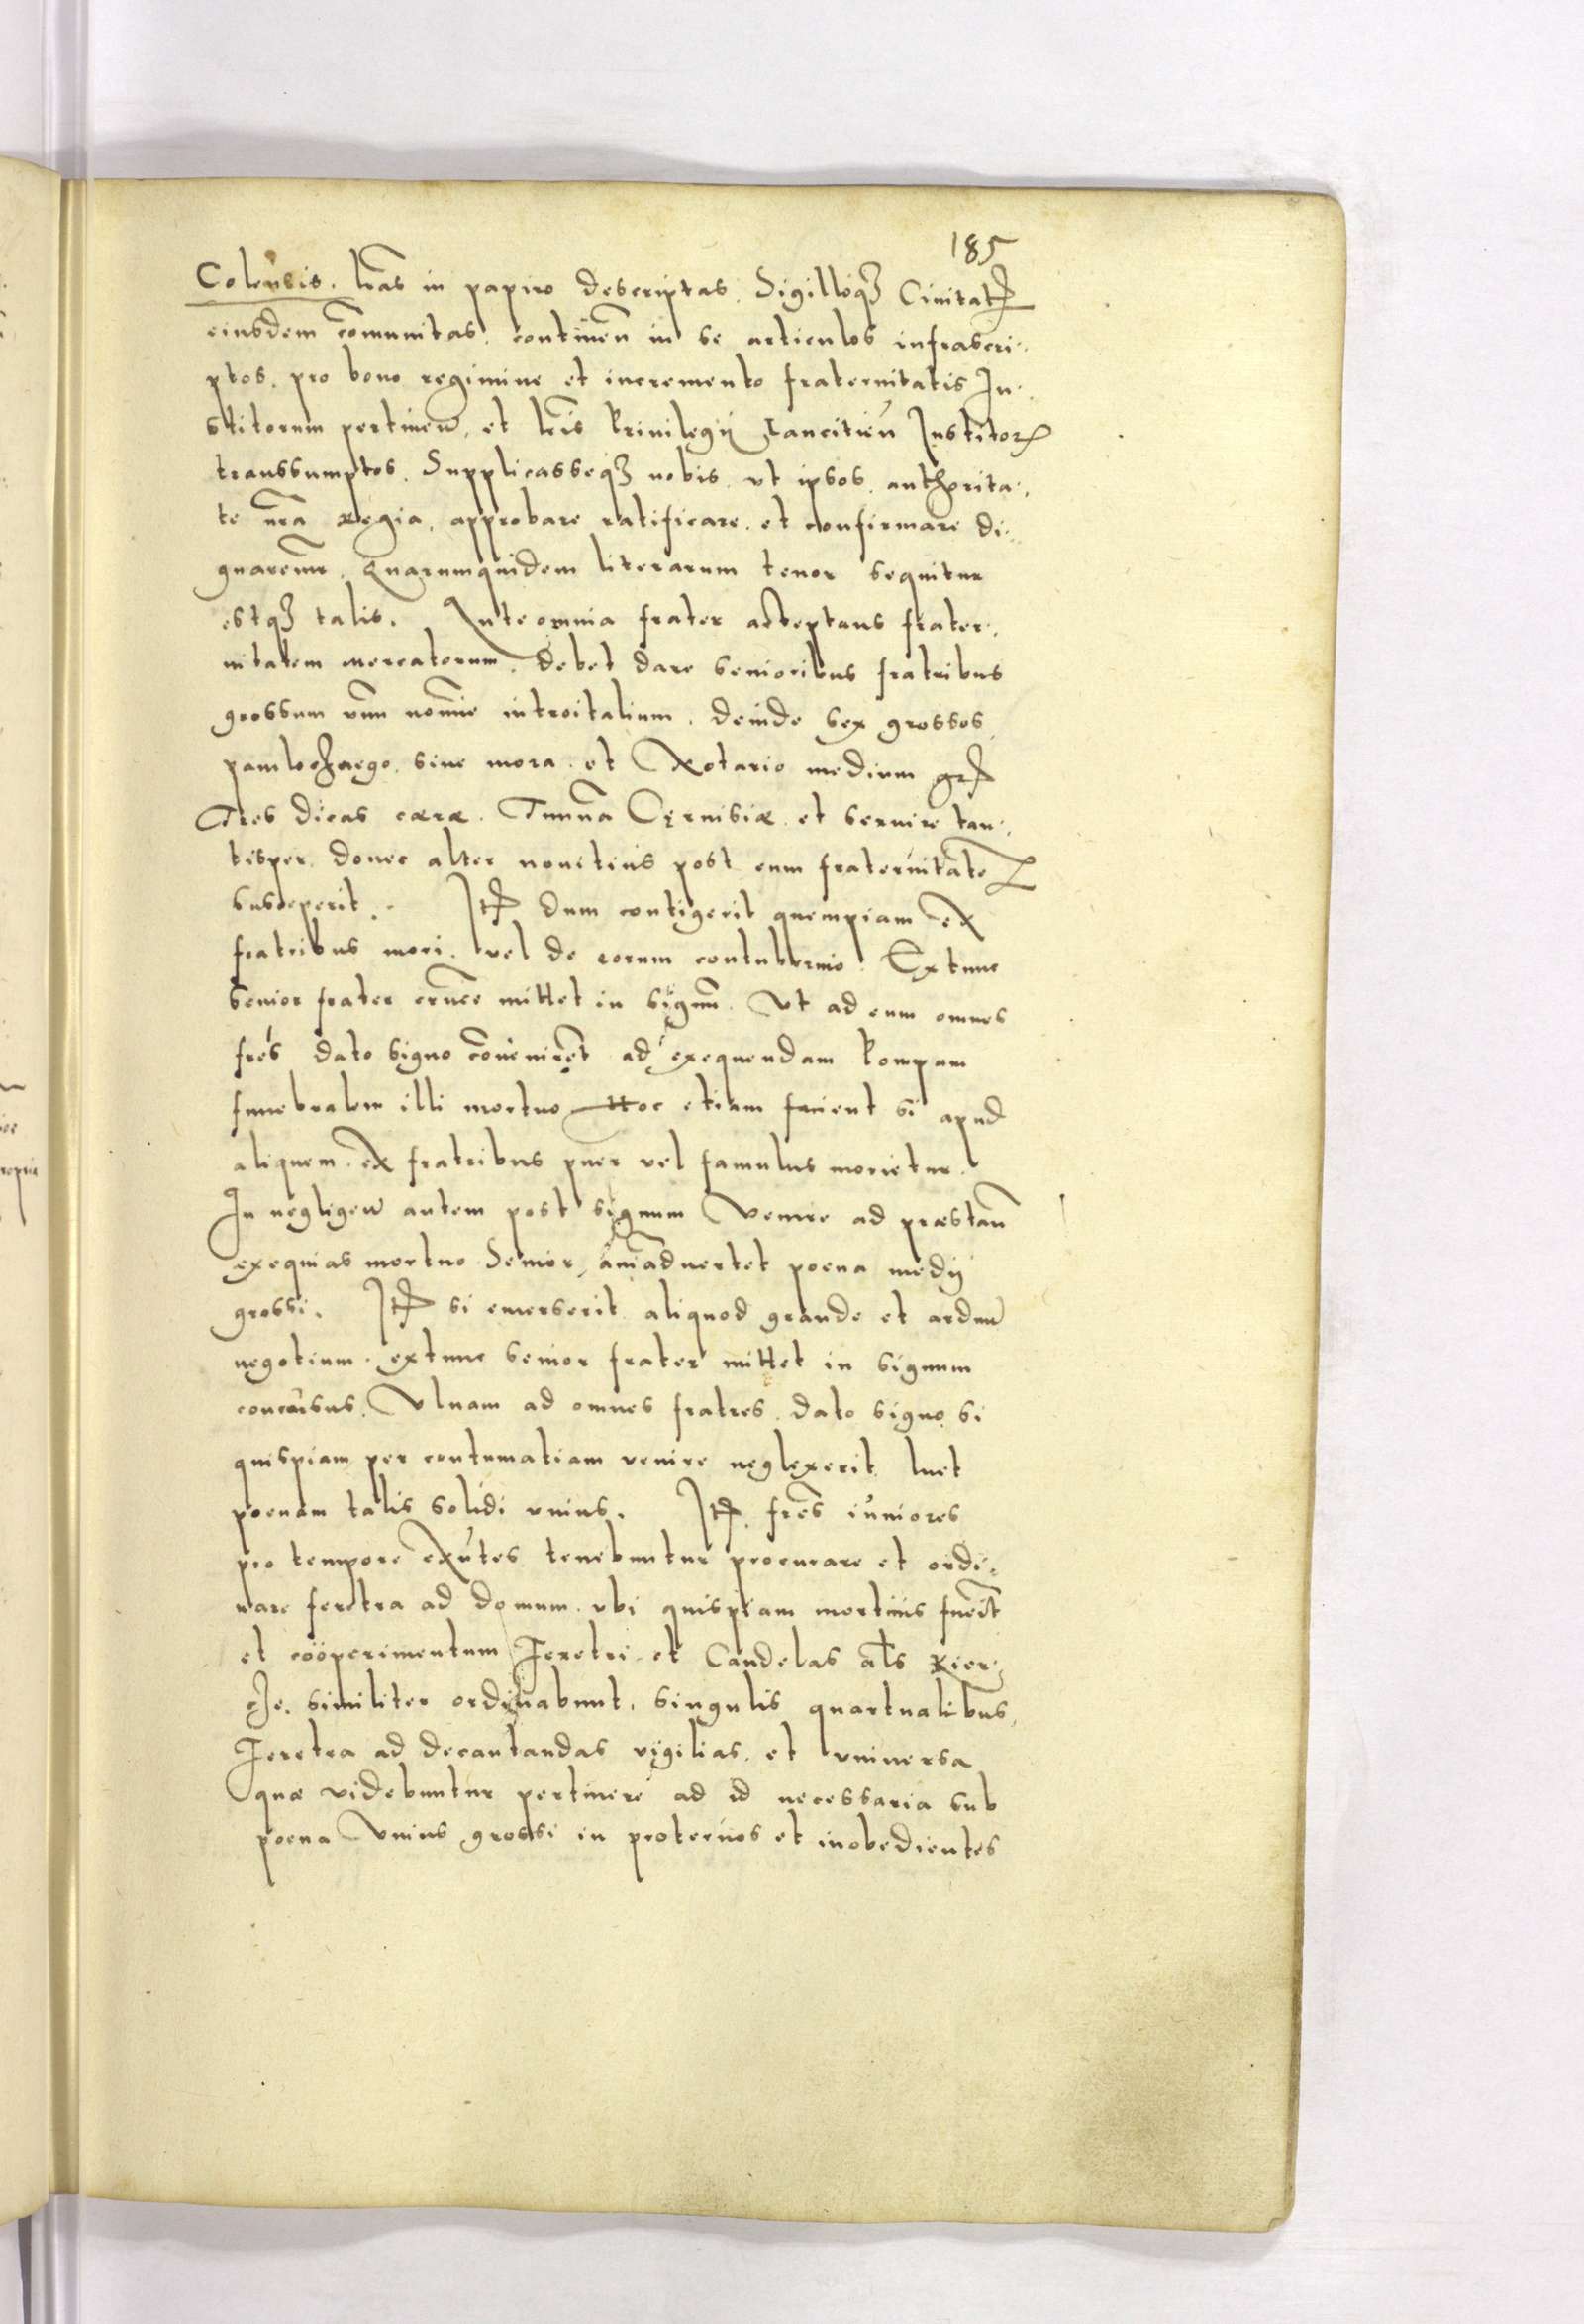 185
Colensis. lr̃as in papiro descriptas. Sigilloqȝ Ciuitatꝭ
eiusdem com̃unitas. continen̄ in se articulos infrascri-
ptos. pro bono regimine et incremento fraternitatis In-
stitorum pertineñ. et lr̃is Priuilegij Institorꝝ
transsumptos. Supplicasseqȝ nobis. vt ipsos. authorita-
te nr̃a Regia. approbare ratificare et confirmare di-
gnaremur̃. Quarumquidem literarum tenor sequitur
estqȝ talis. Ante omnia frater acceptans frater-
nitatem mercatorum. debet dare senioribus fratribus
grossum vnu̅ nom̃ine introitalium. deinde sex grossos
sine mora. et Notario medium grꝭ
Tres dicas cæræ. Tunña Cęruisiæ. et seruire tan-
tisper. donec alter nouitius post eum fraternitate̅
susceperit. Itꝭ dum contigerit quempiam ex
fratribus mori. vel de eorum contubernio. Extunc
senior frater cruce̅ mittet in signu̅. vt ad eum omnes
fre̅s dato signo co̅uenire̅t ad exequendam Pompam
funebralem illi mortuo. Hoc etiam facient si apud
aliquem. ex fratribus puer vel famulus morietur.
In negligeñ autem post signum venire ad præstan̄
exequias mortuo Senior, anĩaduertet poena medij
grossi. Itꝭ si emerserit aliquod grande et arduu̅
negotium. extunc senior frater mittet in signum
concursus. Vlnam ad omnes fratres. dato signo si
quispiam per contumatiam venire neglexerit luet
poenam talis solidi vnius. Itꝭ. fre̅s iuniores
pro tempore exñtes tenebuntur procurare et ordi-
nare feretra ad domum. vbi quispiam mortuus fueri̅t
et cöoperimentum Feretri et Candelas al̅s Kier-
cze. similiter ordinabunt. singulis quartualibus.
Feretra ad decantandas vigilias. et vniuersa
quæ videbuntur pertinere ad id necessaria sub
poena vnius grossi in proteruos et inobedientes